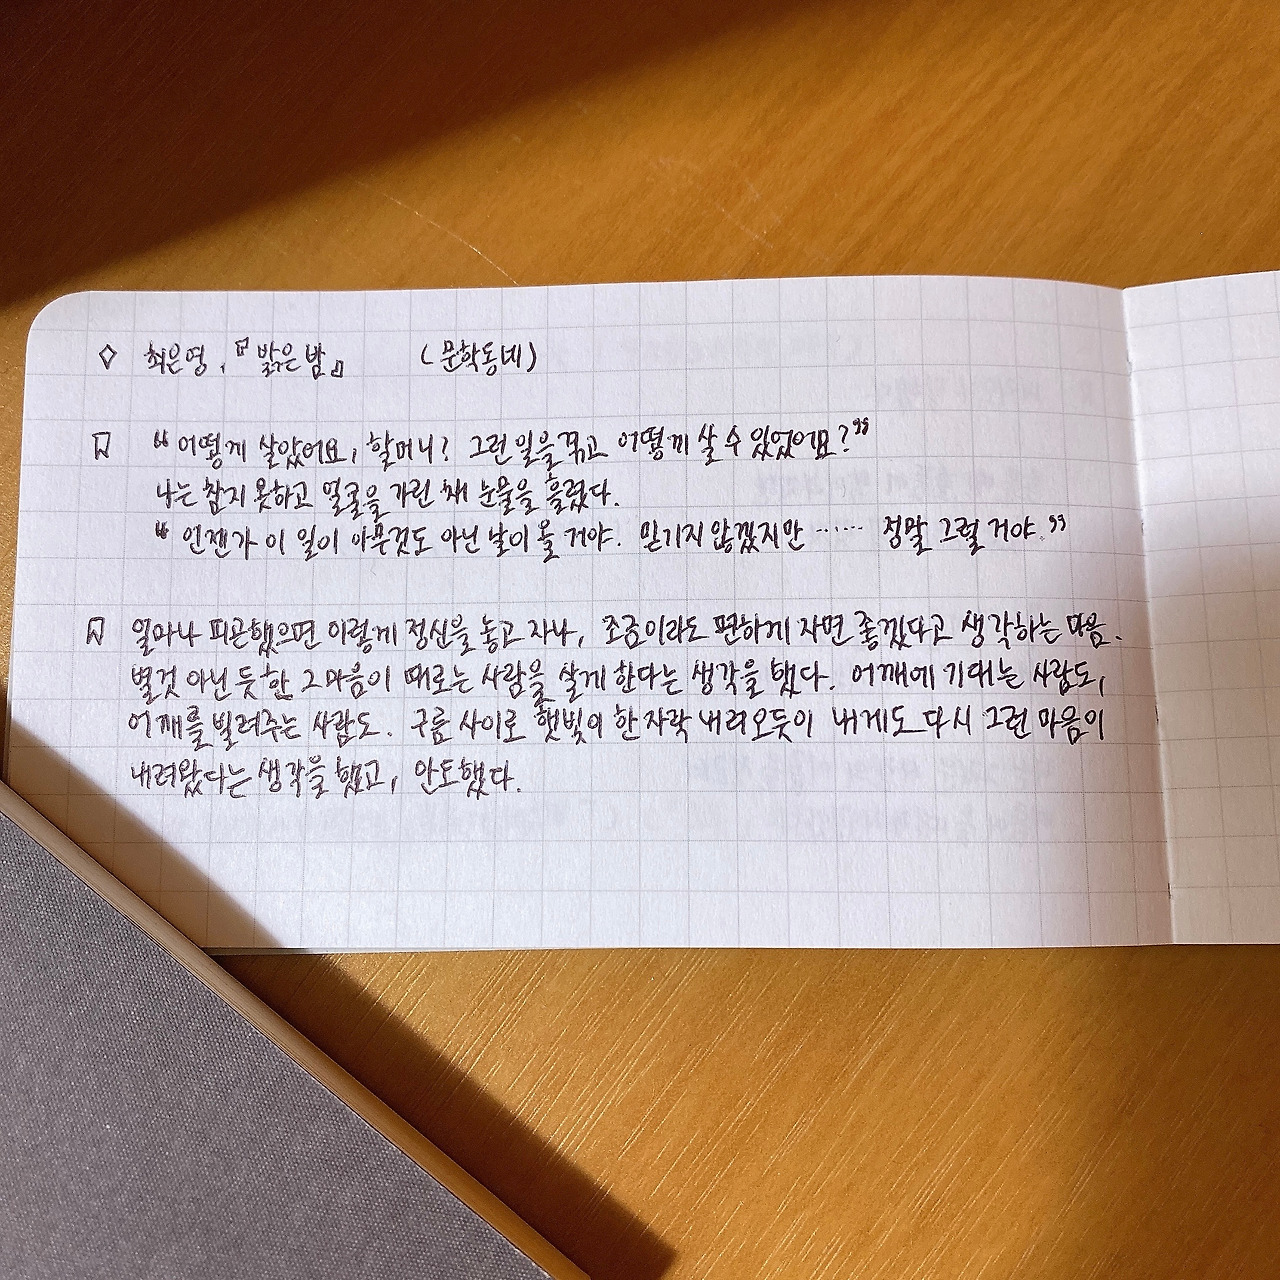 ◇ 최은영, 『밝은 밤』 (문학동네)
“어떻게 살았어요, 할머니? 그런 일을 겪고 어떻게 살 수 있었어요?”
나는 참지 못하고 얼굴을 가린 채 눈물을 흘렸다.
“언젠가 이 일이 아무것도 아닌 날이 올 거야. 믿기지 않겠지만 …… 정말 그럴 거야.”
얼마나 피곤했으면 이렇게 정신을 놓고 자나, 조금이라도 편하게 자면 좋겠다고 생각하는 마음.
별것 아닌 듯한 그 마음이 때로는 사람을 살게 한다는 생각을 했다. 어깨에 기대는 사람도,
어깨를 빌려주는 사람도. 구름 사이로 햇빛이 한 자락 내려오듯이 내게도 다시 그런 마음이
내려왔다는 생각을 했고, 안도했다.